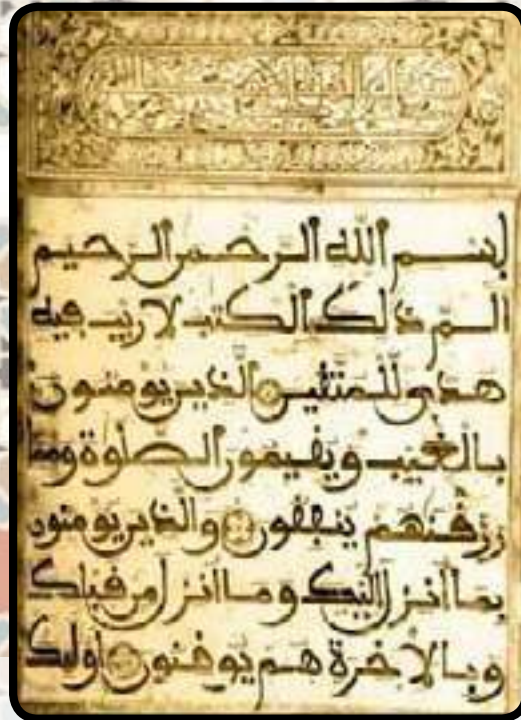 بسم الله الرحمن الرحيم
الم ذلك الكتب لا ريب فيه
هدى للمتقين الذين يؤمنون
بالغيب ويقيمون الصلوة ومما
رزقنهم ينفقون والذين يؤمنون
بما أنزل إليك وما أنزل من قبلك
وبالآخرة هم يوقنون أولئك